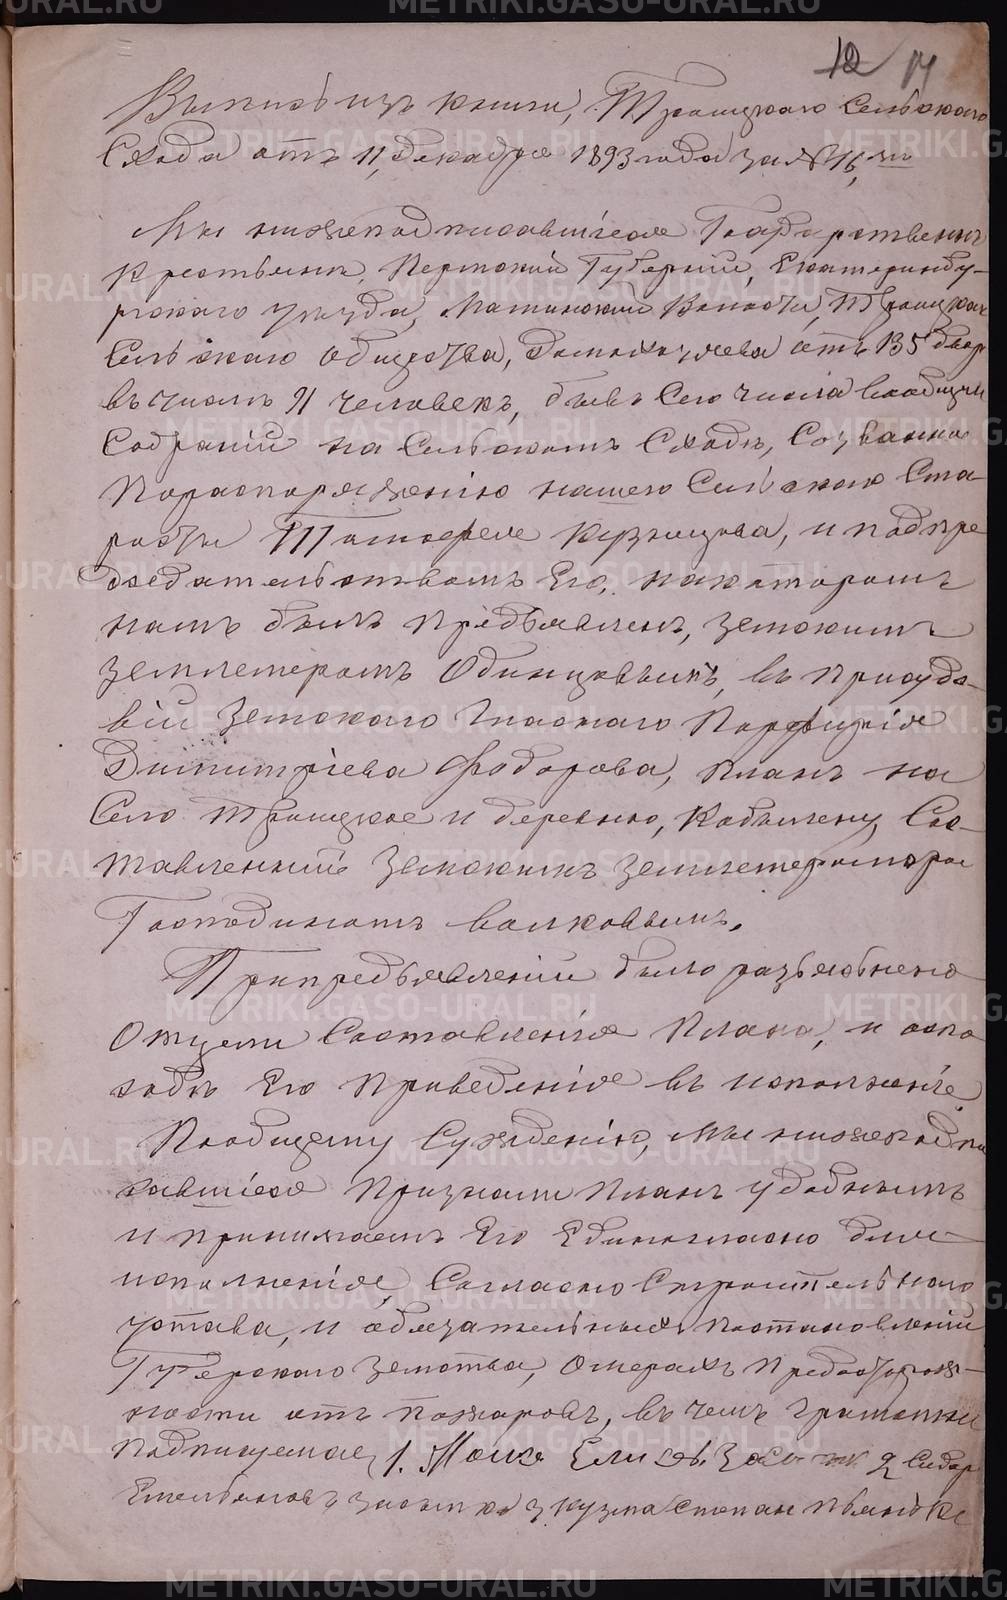 12 14
Выпись изъ книги, Троицкаго Сельскаго
Схода отъ 11, декабря 1893 года за № 16,
Мы нижеподписавшіеся Государственн
Крестьяне, Пермской Губерній, Екатеринбу-
ргскаго уѣзда, Маминской Волости, Троицкаго
Сельскаго общества, домохозяева отъ 135 двор
въ числѣ 91 человекъ, бывъ Сего числа
Собраній на Сельскомъ Сходѣ, Созванно
Пораспоряженію нашего Сельскаго Ста-
росты Тимофея Кузнецова, и подпре
доедательствомъ Его, накоторомъ
намъ былъ предъявленъ, земскимъ
землемеромъ Одинцовымъ, въ присудс-
вій Земскаго Гласнаго Порфирія
Димитріева Федорова, планъ на
Село Троицкое и деревню, Кабылену, Сос-
тавленный Земскимъ землемеромъ
Господиномъ Волковымъ.
Припредъявленій было разъяснено
Отцели Составленія Плана, и оспо
собѣ Его Приведенія въ исполненіе.
Пообщему Сужденію, мы нижеподпи
савшіеся Признали планъ удобнымъ
и принимаемъ Его Единогласно для
исполненія, Согласно Строительнаго
устава, и обязательныхъ постановленій
Губерскаго земства, Омерахъ Предосторож-
ности отъ пожаровъ, въ чемъ
Подписуемся, 1. 2 Сидор
Емельяновъ 3 Кузма Степан